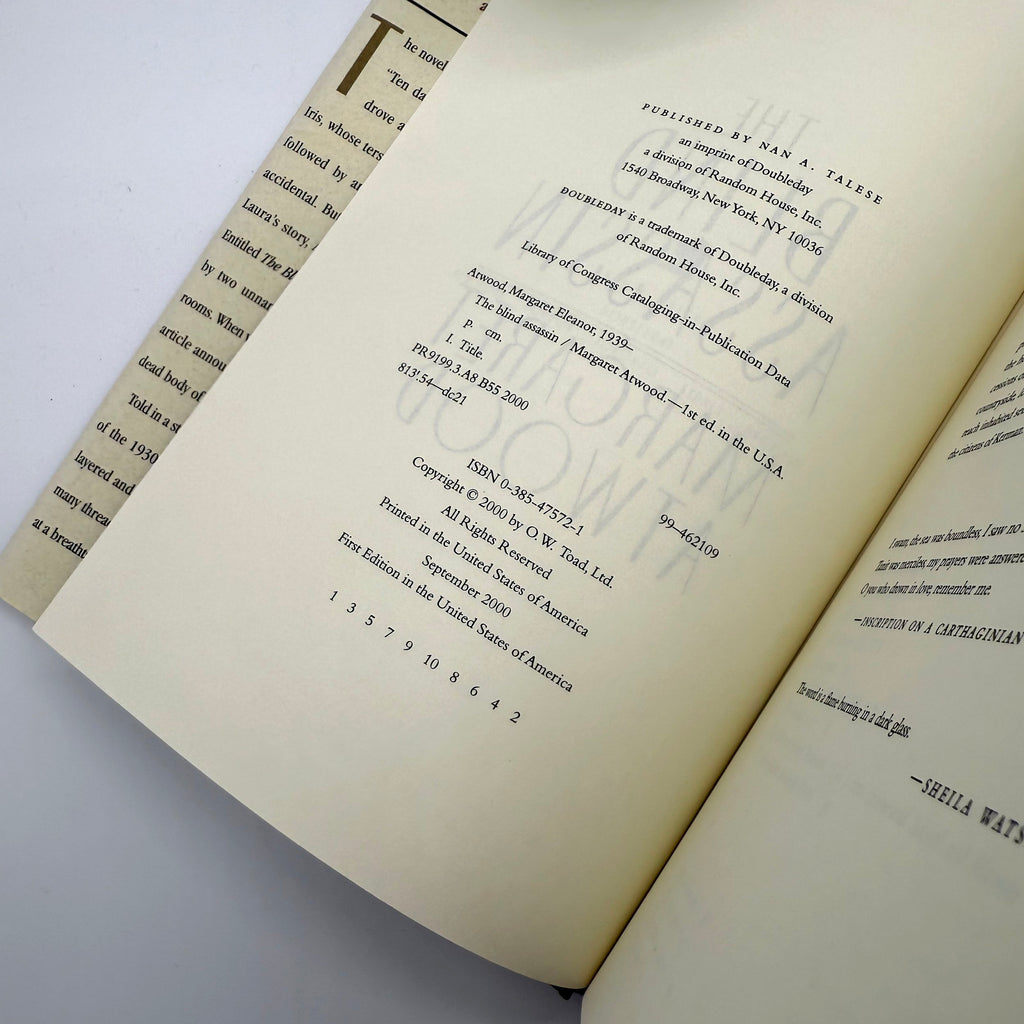 The novel
"Ten da
drove a
Iris, whose ters
followed by an
accidental. But
Laura's story,
Entitled The Bl
by two unnar
rooms. When
article annou
dead body of
Told in a st
of the 1930
layered and
many threa
at a breatht
PUBLISHED BY NAN A. TALESE
an imprint of Doubleday
a division of Random House, Inc.
1540 Broadway, New York, NY 10036
DOUBLEDAY is a trademark of Doubleday, a division
of Random House, Inc.
Library of Congress Cataloging-in-Publication Data
Atwood, Margaret Eleanor, 1939–
The blind assassin / Margaret Atwood.—1st ed. in the U.S.A.
p. cm.
I. Title.
PR9199.3.A8 B55 2000
813'.54—dc21
99–462109
ISBN 0-385-47572-1
Copyright © 2000 by O. W. Toad, Ltd.
All Rights Reserved
Printed in the United States of America
September 2000
First Edition in the United States of America
1 3 5 7 9 10 8 6 4 2
cessions o
countryside.
reach inhabited se
the citizens of Kerman.
I swam, the sea was boundless, I saw no
Tanit was merciless, my prayers were answere
O you who drown in love, remember me.
—INSCRIPTION ON A CARTHAGINIAN
The word is a flame burning in a dark glass.
—SHEILA WATS